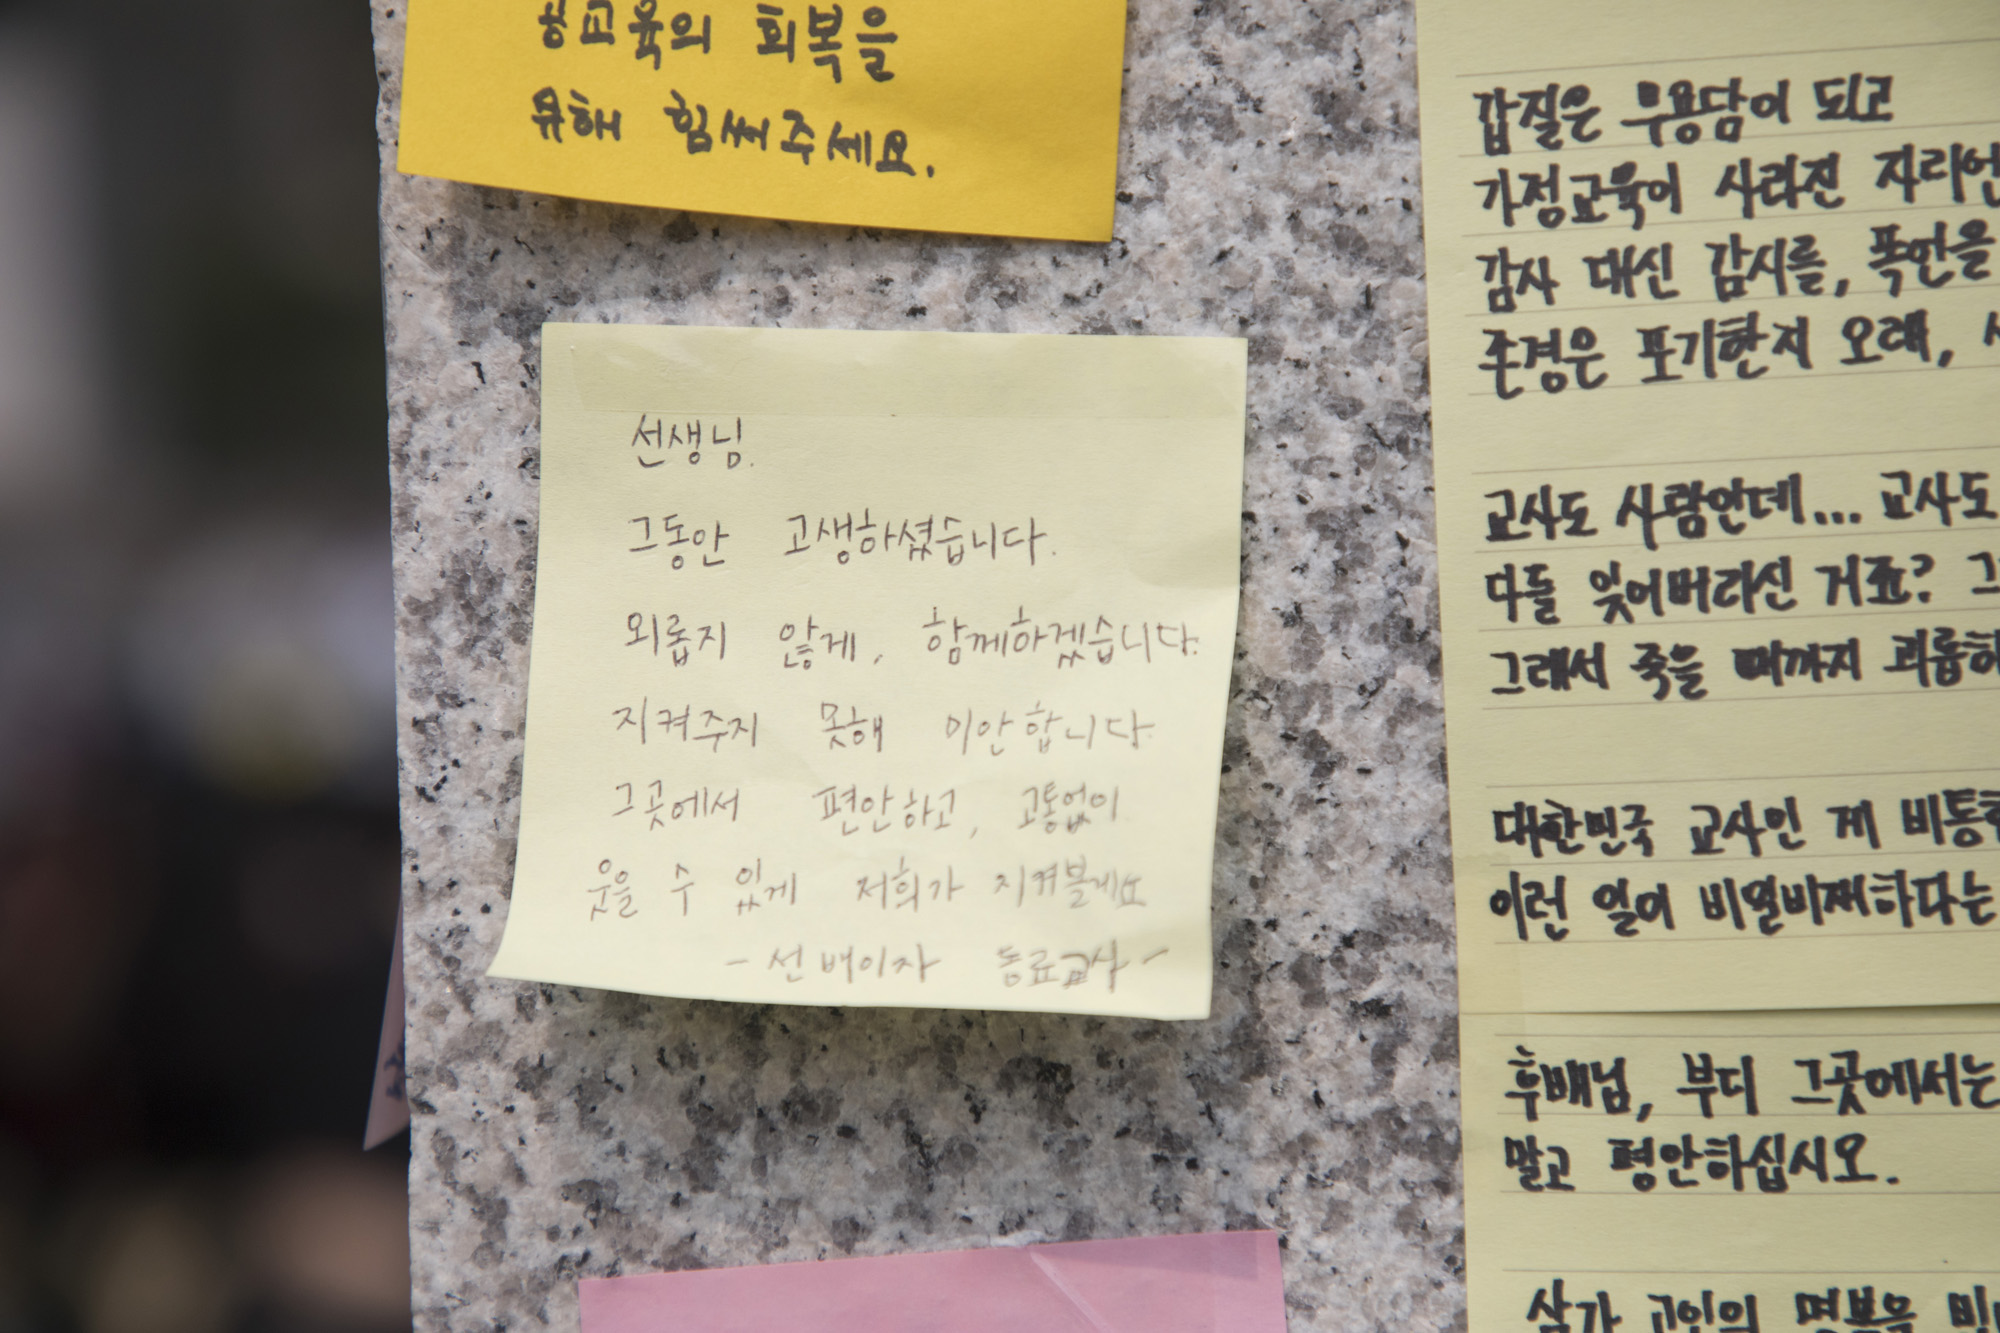 공교육의 회복을
위해 힘써주세요.
선생님.
그동안 고생하셨습니다.
외롭지 않게, 함께하겠습니다.
지켜주지 못해 미안합니다.
그곳에서 편안하고, 고통없이
웃을 수 있게 저희가 지켜볼게요
- 선배이자 동료교사 -
갑질은 무용담이 되고
가정교육이 사라진 자리엔
감사 대신 감시를, 폭언을
존경은 포기한지 오래,
교사도 사람인데... 교사도
다들 잊어버리신 거죠?
그래서 죽을 때까지
대한민국 교사인 게
이런 일이 비일비재하다는
후배님, 부디 그곳에서는
말고 평안하십시오.
삼가 고인의 명복을